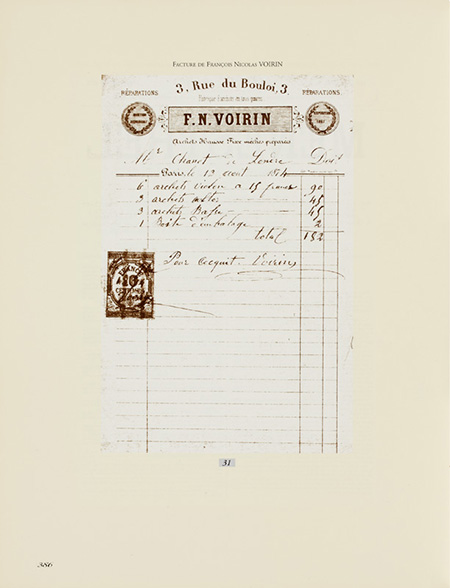 FACTURE DE FRANÇOIS NICOLAS VOIRIN
3, Rue du Bouloi, 3
RÉPARATIONS
RÉPARATIONS
F. N. VOIRIN
Archets Hausse Fixe mèches préparées
Mr Chanot de Londre Doit
Paris, le 13 aout 1874
6 archets violon a 15 francs 90
3 archets altos 45
3 archets Basse 45
1 Boite d'embalage 2
total 182
FRANCE
10
CENTIMES
Pour acquit. Voirin
31
386